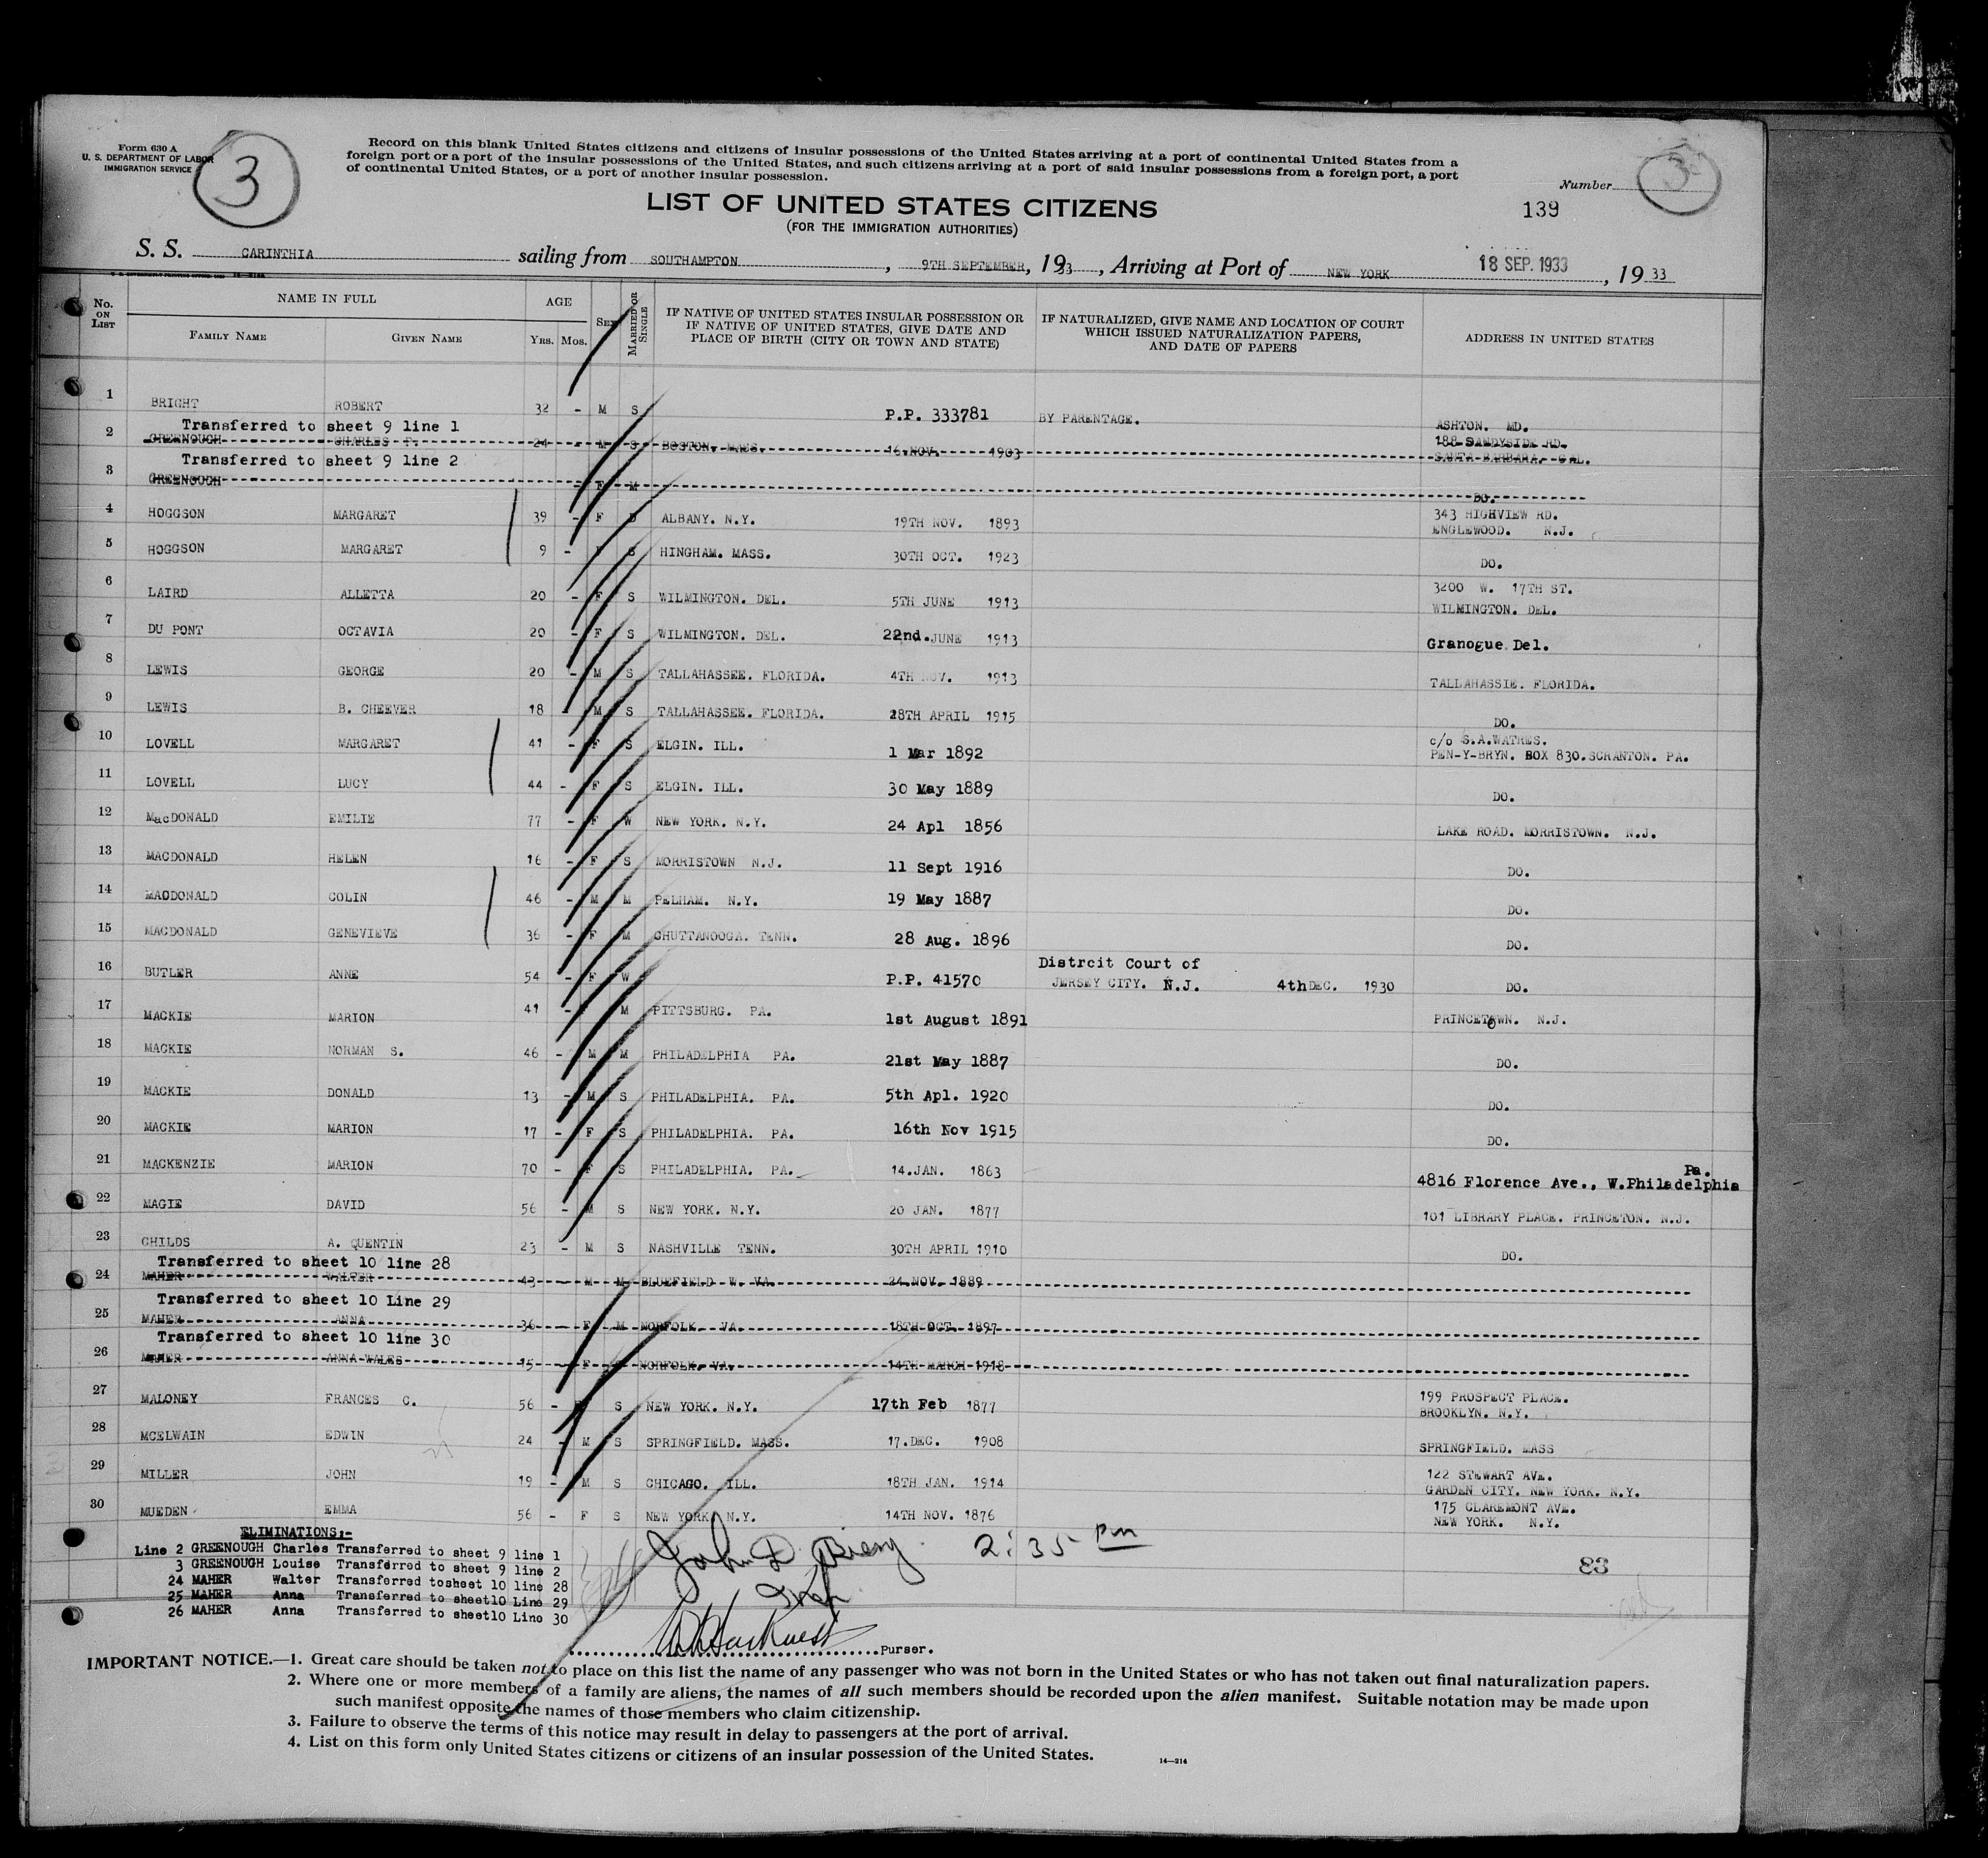 Form 630 A
U. S. DEPARTMENT OF LABOR
IMMIGRATION SERVICE
3
Record on this blank United States citizens and citizens of insular possessions of the United States arriving at a port of continental United States from a
foreign port or a port of the insular possessions of the United States, and such citizens arriving at a port of said insular possessions from a foreign port, a port
of continental United States, or a port of another insular possession.
Number
139
LIST OF UNITED STATES CITIZENS
(FOR THE IMMIGRATION AUTHORITIES)
S. S. CARINTHIA sailing from SOUTHAMPTON, 9TH SEPTEMBER, 1933, Arriving at Port of NEW YORK 18 SEP. 1933, 19 33
No. ON LIST NAME IN FULL FAMILY NAME GIVEN NAME AGE YRS. MOS. SEX MARRIED OR SINGLE IF NATIVE OF UNITED STATES INSULAR POSSESSION OR IF NATIVE OF UNITED STATES, GIVE DATE AND PLACE OF BIRTH (CITY OR TOWN AND STATE) IF NATURALIZED, GIVE NAME AND LOCATION OF COURT WHICH ISSUED NATURALIZATION PAPERS, AND DATE OF PAPERS ADDRESS IN UNITED STATES
1 BRIGHT ROBERT 32 - M S P.P. 333781 BY PARENTAGE. ASHTON. MD.
Transferred to sheet 9 line 1
2 GREENOUGH CHARLES P. 24 - M S BOSTON. MASS. 16.NOV. 1903 188 SANDYSIDE RD. SANTA BARBARA. CAL.
Transferred to sheet 9 line 2
3 GREENOUGH - F M DO.
4 HOGGSON MARGARET 39 - F D ALBANY. N.Y. 19TH NOV. 1893 343 HIGHVIEW RD. ENGLEWOOD. N.J.
5 HOGGSON MARGARET 9 - F S HINGHAM. MASS. 30TH OCT. 1923 DO.
6 LAIRD ALLETTA 20 - F S WILMINGTON. DEL. 5TH JUNE 1913 3200 W. 17TH ST. WILMINGTON. DEL.
7 DU PONT OCTAVIA 20 - F S WILMINGTON. DEL. 22nd.JUNE 1913 Granogue Del.
8 LEWIS GEORGE 20 - M S TALLAHASSEE. FLORIDA. 4TH NOV. 1913 TALLAHASSIE. FLORIDA.
9 LEWIS B. CHEEVER 18 - M S TALLAHASSEE. FLORIDA. 28TH APRIL 1915 DO.
10 LOVELL MARGARET 41 - F S ELGIN. ILL. 1 Mar 1892 c/o S.A.WATRES. PEN-Y-BRYN. BOX 830.SCRANTON. PA.
11 LOVELL LUCY 44 - F S ELGIN. ILL. 30 May 1889 DO.
12 MacDONALD EMILIE 77 - F W NEW YORK. N.Y. 24 Apl 1856 LAKE ROAD. MORRISTOWN. N.J.
13 MACDONALD HELEN 16 - F S MORRISTOWN N.J. 11 Sept 1916 DO.
14 MACDONALD COLIN 46 - M M PELHAM. N.Y. 19 May 1887 DO.
15 MACDONALD GENEVIEVE 36 - F M CHUTTANOOGA. TENN. 28 Aug. 1896 DO.
16 BUTLER ANNE 54 - F W P.P. 41570 Distrcit Court of JERSEY CITY. N.J. 4thDEC. 1930 DO.
17 MACKIE MARION 41 - F M PITTSBURG. PA. 1st August 1891 PRINCETOWN. N.J.
18 MACKIE NORMAN S. 46 - M M PHILADELPHIA PA. 21st May 1887 DO.
19 MACKIE DONALD 13 - M S PHILADELPHIA. PA. 5th Apl. 1920 DO.
20 MACKIE MARION 17 - F S PHILADELPHIA. PA. 16th Nov 1915 DO.
21 MACKENZIE MARION 70 - F S PHILADELPHIA. PA. 14.JAN. 1863 4816 Florence Ave., W.Philadelphia Pa.
22 MAGIE DAVID 56 - M S NEW YORK. N.Y. 20 JAN. 1877 101 LIBRARY PLACE. PRINCETON. N.J.
23 CHILDS A. QUENTIN 23 - M S NASHVILLE TENN. 30TH APRIL 1910 DO.
Transferred to sheet 10 line 28
24 MAHER WALTER 43 - M M BLUEFIELD W. VA. 24.NOV. 1889
Transferred to sheet 10 Line 29
25 MAHER ANNA 36 - F M NORFOLK. VA. 18TH OCT. 1897
Transferred to sheet 10 line 30
26 MAHER ANNA WALES 15 - F S NORFOLK. VA. 14TH MARCH 1918
27 MALONEY FRANCES C. 56 - S NEW YORK. N.Y. 17th Feb 1877 199 PROSPECT PLACE. BROOKLYN. N.Y.
28 MCELWAIN EDWIN 24 - M S SPRINGFIELD. MASS. 17.DEC. 1908 SPRINGFIELD. MASS
29 MILLER JOHN 19 - M S CHICAGO. ILL. 18TH JAN. 1914 122 STEWART AVE. GARDEN CITY. NEW YORK. N.Y.
30 MUEDEN EMMA 56 - F S NEW YORK. N.Y. 14TH NOV. 1876 175 CLAREMONT AVE. NEW YORK. N.Y.
ELIMINATIONS;-
Line 2 GREENOUGH Charles Transferred to sheet 9 line 1
3 GREENOUGH Louise Transferred to sheet 9 line 2
24 MAHER Walter Transferred tosheet 10 line 28
25 MAHER Anna Transferred to sheet10 Line 29
26 MAHER Anna Transferred to sheet10 Line 30
John D. 2:35 pm
83
Purser.
IMPORTANT NOTICE.—1. Great care should be taken not to place on this list the name of any passenger who was not born in the United States or who has not taken out final naturalization papers.
2. Where one or more members of a family are aliens, the names of all such members should be recorded upon the alien manifest. Suitable notation may be made upon
such manifest opposite the names of those members who claim citizenship.
3. Failure to observe the terms of this notice may result in delay to passengers at the port of arrival.
4. List on this form only United States citizens or citizens of an insular possession of the United States.
14—214